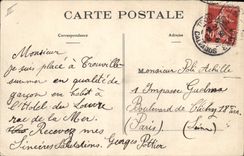 CARTE POSTALE
Correspondance
Monsieur
je suis placé à Trouville
sur mer en qualité de
garçon en habit à
l'Hôtel du Louvre
rue de la Mer.
Recevez mes
Sincères Salutations. Georges Pothier
Monsieur Poli Achille
1 Impasse Guelma
Boulevard de Clichy 18e arr.
(Paris) (Seine)